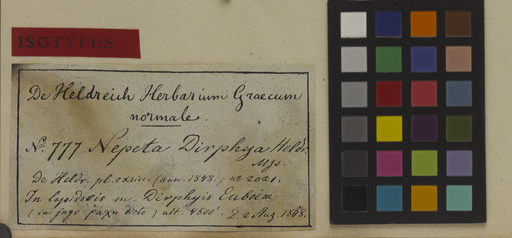 ISOTYPUS
De Heldreich Herbarium Graecum
normale.
No. 777. Nepeta Dirphya Heldr.
mss.
De Heldr. pl. exsicc. (ann. 1848.) no 2021.
In lapidosis m. Dirphys Euboeae
(in jugo ράχη dicto) alt. 4500'. D. 2 Aug. 1868.